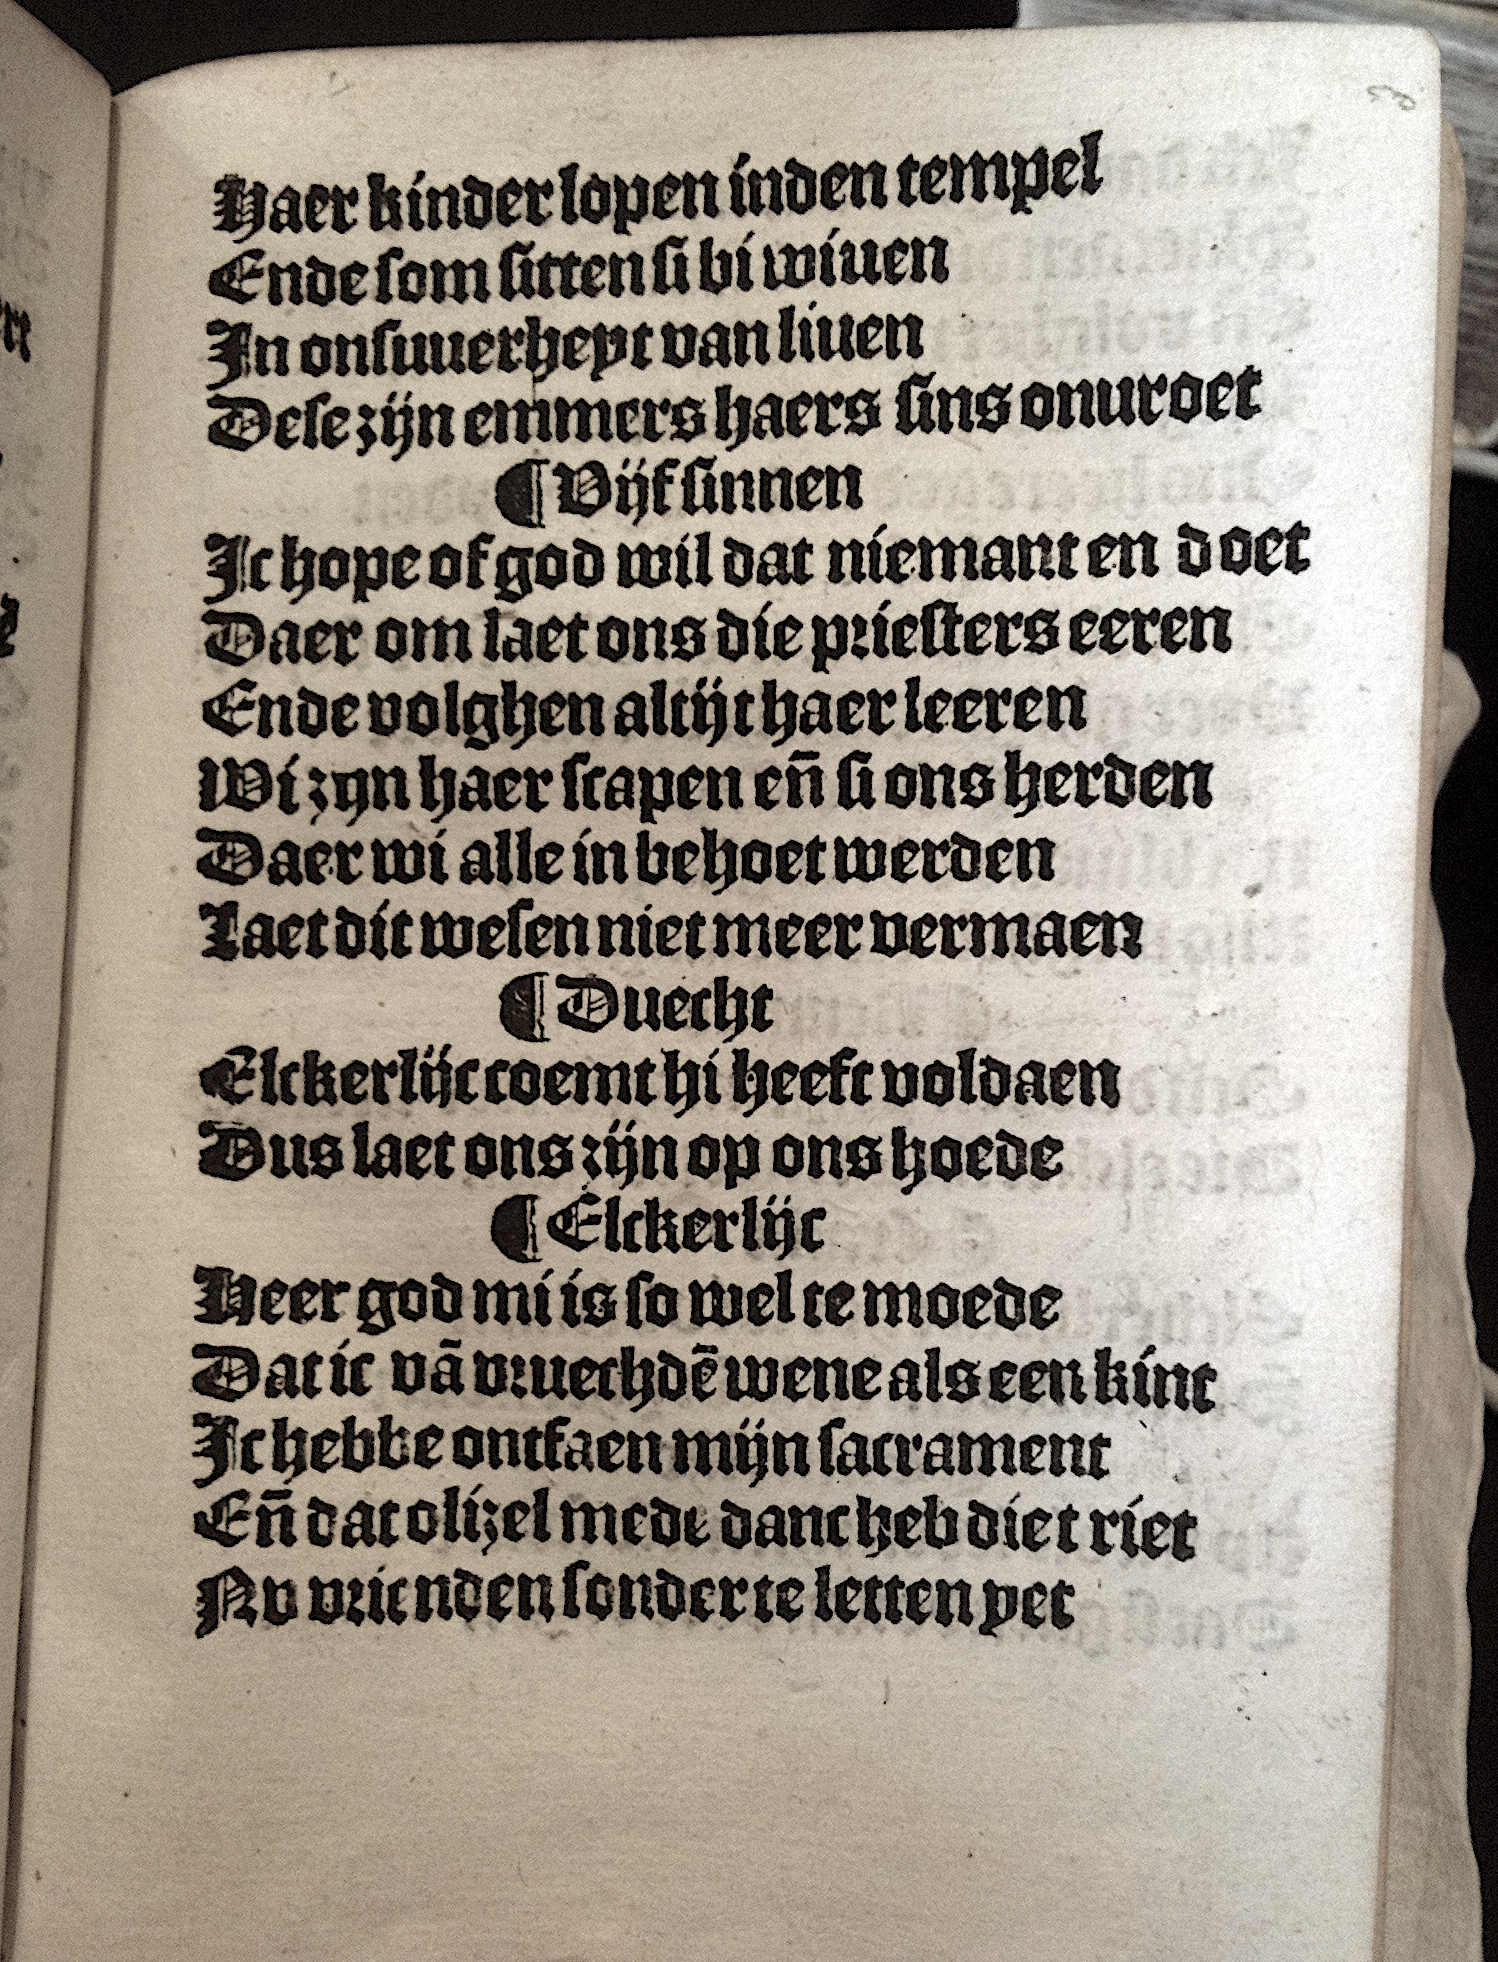 Haer kinder lopen inden tempel
Ende som sitten si bi wiuen
In onsuuerheyt van liuen
Dese zijn emmers haers sins onuroet
¶ Vijf sinnen
Ic hope of god wil dat niemant en doet
Daer om laet ons die priesters eeren
Ende volghen altijt haer leeren
Wi zyn haer scapen eñ si ons herden
Daer wi alle in behoet werden
Laet dit wesen niet meer vermaen
¶ Duecht
Elckerlijc coemt hi heeft voldaen
Dus laet ons zijn op ons hoede
¶ Elckerlijc
Heer god mi is so wel te moede
Dat ic vā vruechdē wene als een kint
Ic hebbe ontfaen mijn sacrament
Eñ dat olizel mede danc heb diet riet
Nv vrienden sonder te letten yet